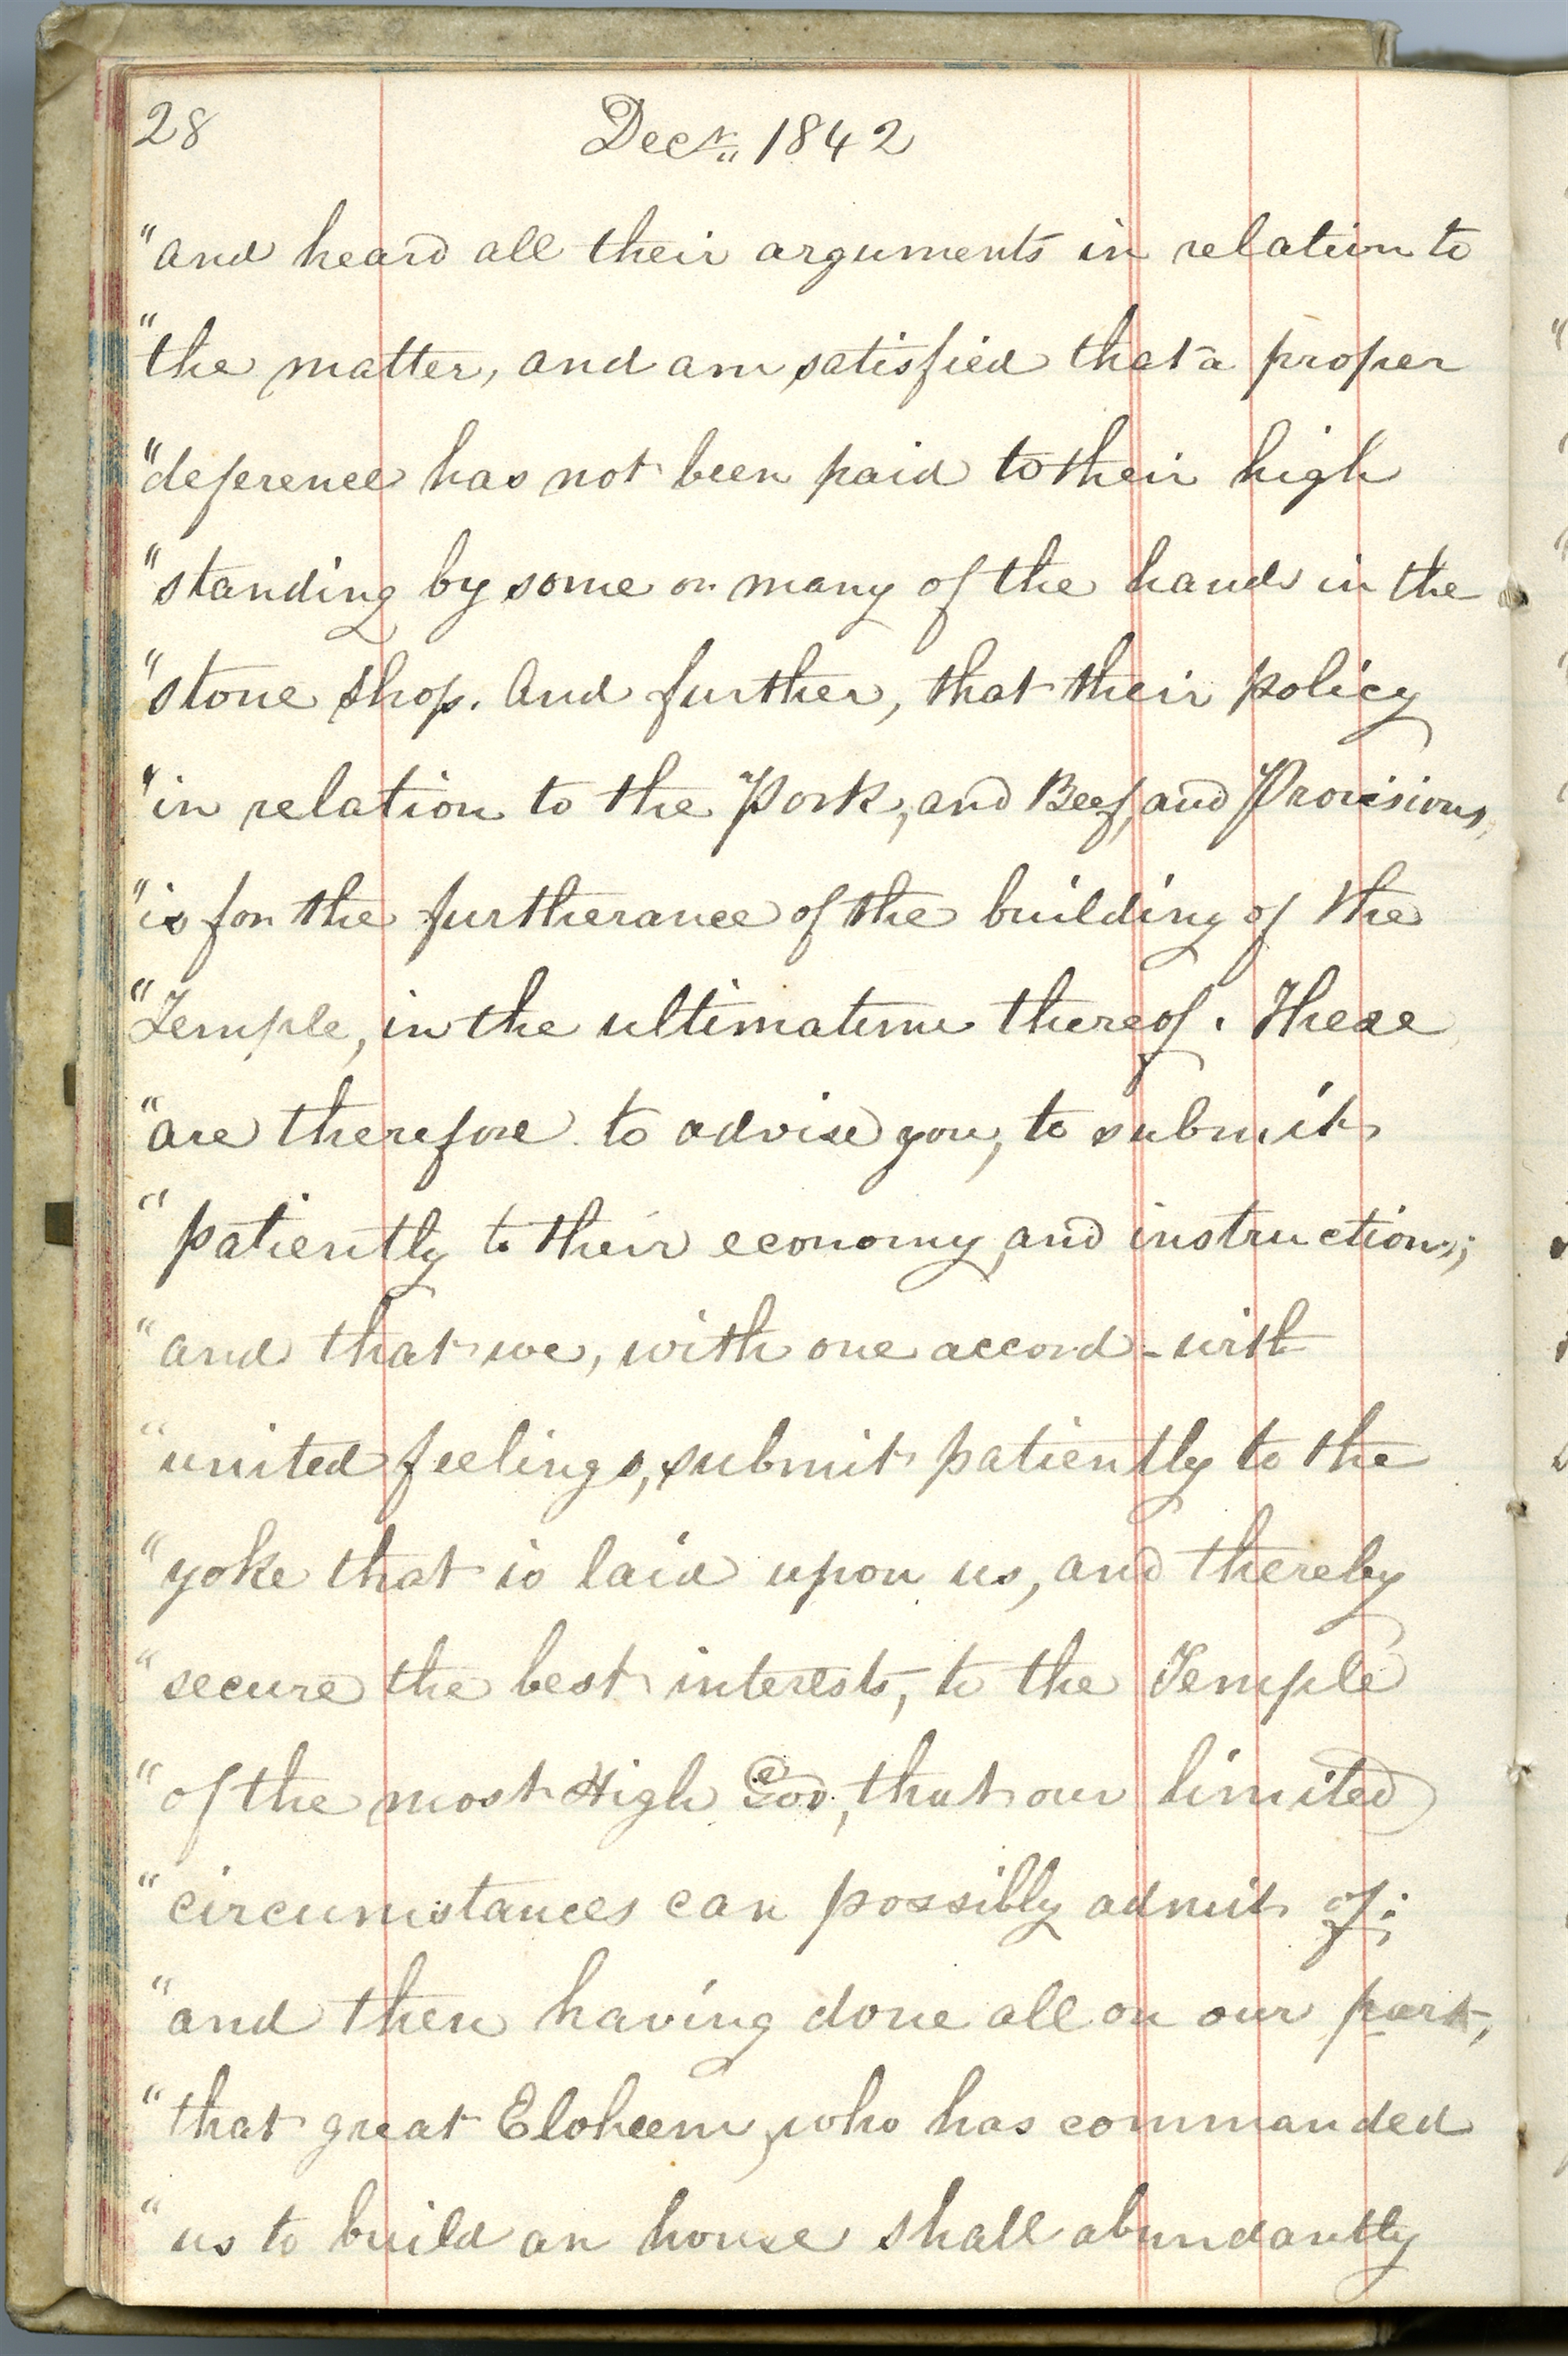 28 Decr. 1842
"and heard all their arguments in relation to
"the matter, and am satisfied that a proper
"deference has not been paid to their high
"standing by some or many of the hands in the
"stone shop. And further, that their policy
"in relation to the Pork, and Beef, and Provisions,
"is for the furtherance of the building of the
"Temple, in the ultimatum thereof. These
"are therefore to advise you, to submit
"patiently to their economy, and instructions;
"and that we, with one accord - with
"united feelings, submit patiently to the
"yoke that is laid upon us, and thereby
"secure the best interests, to the Temple
"of the most High God, that our limited
"circumstances can possibly admit of;
"and then having done all on our part,
"that great Eloheem, who has commanded
"us to build an house shall abundantly